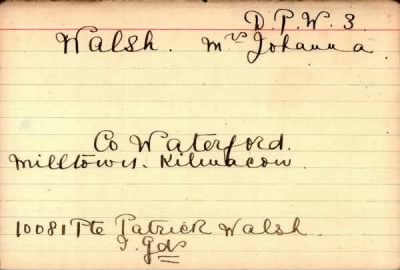 D.P.W. 3
Walsh. Mrs Johanna
Co Waterford.
Milltown. Kilmacow
10081 Pte Patrick Walsh
I. Gds